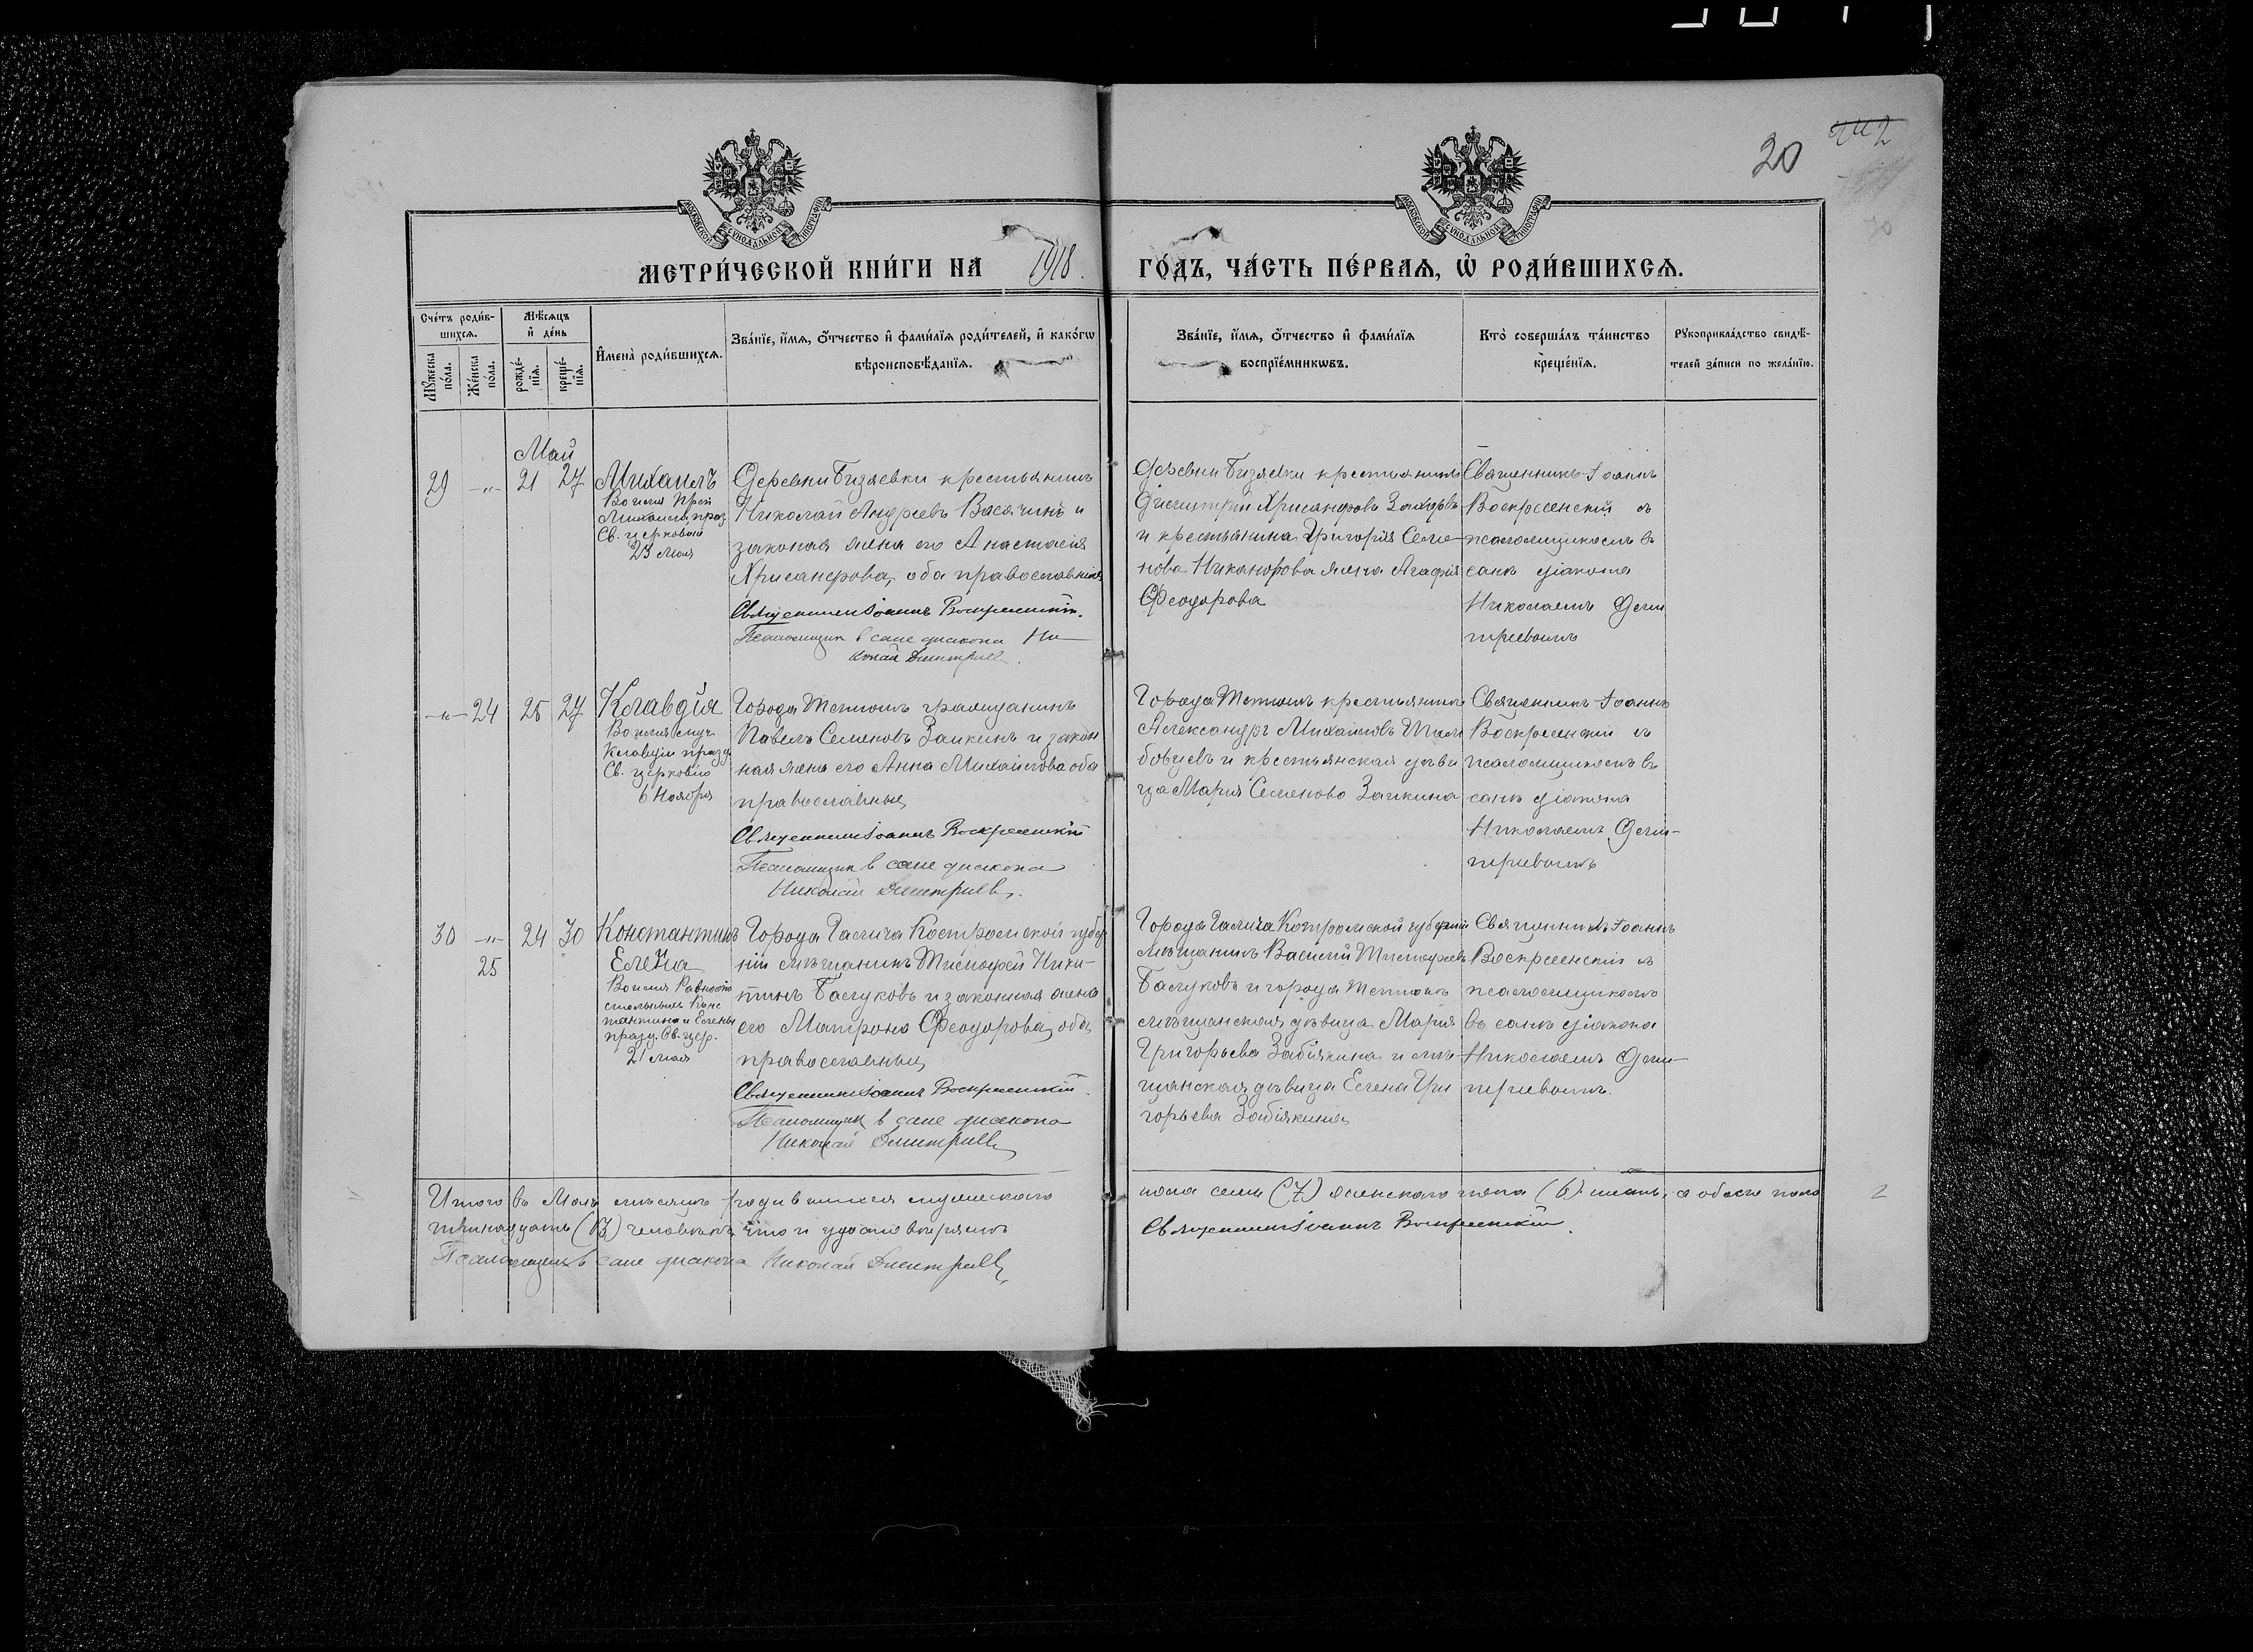 20
МЕТРИ́ЧЕСКОЙ КНИ́ГИ НА 1918. ГО́ДЪ, ЧА́СТЬ ПЕ́РВАѦ, Ѡ҆ РОДИ́ВШИХСѦ.
Сче́тъ роди́в-
шихсѧ.
Мѣ́сѧцъ
и҆ де́нь
Мꙋ́жеска по́ла.
Же́нска по́ла.
рожде́-
нїѧ.
креще́-
нїѧ.
И҆мена̀ роди́вшихсѧ.
Зва́нїе, и҆́мѧ, ѻ҆́тчество и҆ фами́лїѧ роди́телей, и҆ како́гѡ
вѣроисповѣ́данїѧ.
Зва́нїе, и҆́мѧ, ѻ҆́тчество и҆ фами́лїѧ
воспрїе́мникѡвъ.
Кто̀ соверша́лъ та́инство
креще́нїѧ.
Рꙋкоприкла́дство свидѣ́-
телей за́писи по жела́нїю.
Май
29 -"- 21 27
Михаилъ
Во имя Преп
Михаила праз.
Св. церковью
23 мая
Деревни Бизяевки крестьянинъ
Николай Андреевъ Васячинъ и
законая жена его Анастасія
Хрисанфова, оба православные
Священникъ Іоаннъ Воскресенскій.
Псаломщик в сане диакона Ни-
колай Димитриев.
Деревни Бизяевки крестьянинъ
Димитрій Хрисанфовъ
и крестьянина Григорія Семе-
нова Никанорова жена Агафія
Феодорова
Священникъ Іоаннъ
Воскресенскій съ
псаломщикомъ въ
санѣ діакона
Николаемъ Дими
тріевымъ
-"- 24 25 27
Клавдія
Во имя муч.
Клавдіи празд
Св. церковію
6 Ноября
Города Темникъ гражданинъ
Павелъ Семеновъ Заикинъ и закон
ная жена его Анна Михайлова оба
православные
Священникъ Іоаннъ Воскресенскій
Псаломщик в сане диакона
Николай Димитриев.
Города Темникъ крестьянинъ
Александръ Михайловъ
и крестьянская дѣви
ца Марія Семенова Заикина
Священникъ Іоаннъ
Воскресенскій съ
псаломщикомъ въ
санѣ діакона
Николаемъ Дими-
тріевымъ
30 -"- 24 30
25
Константинъ
Елена
Во имя Равноапо
стольныхъ Конс
тантина и Елены
празд. Св. цер.
21 мая
Города Галича Костромской губер
ніи мѣщанинъ Тимофей Ники-
тинъ Балуковъ и законная жена
его Матрона Феодорова, оба
православные
Священникъ Іоаннъ Воскресенскій.
Псаломщик в сане диакона
Николай Димитриев
Города Галича Костромской губерніи
мѣщанинъ Василій Тимофеевъ
Балуковъ и города Темникъ
мѣщанская дѣвица Марія
Григорьева Забіякина и мѣ-
щанская дѣвица Елена Гри
горьева Забіякина
Священникъ Іоаннъ
Воскресенскій съ
псаломщикомъ
въ санѣ діакона
Николаемъ Дими-
тріевымъ.
Итого въ Маѣ мѣсяцѣ родившихся мужескаго пола семь (7) женскаго пола (6) шесть, а обоего пола
тринадцать (13) человѣкъ, что и удостовѣряемъ
Священникъ Іоаннъ Воскресенскій.
Псаломщик в сане диакона Николай Димитриев